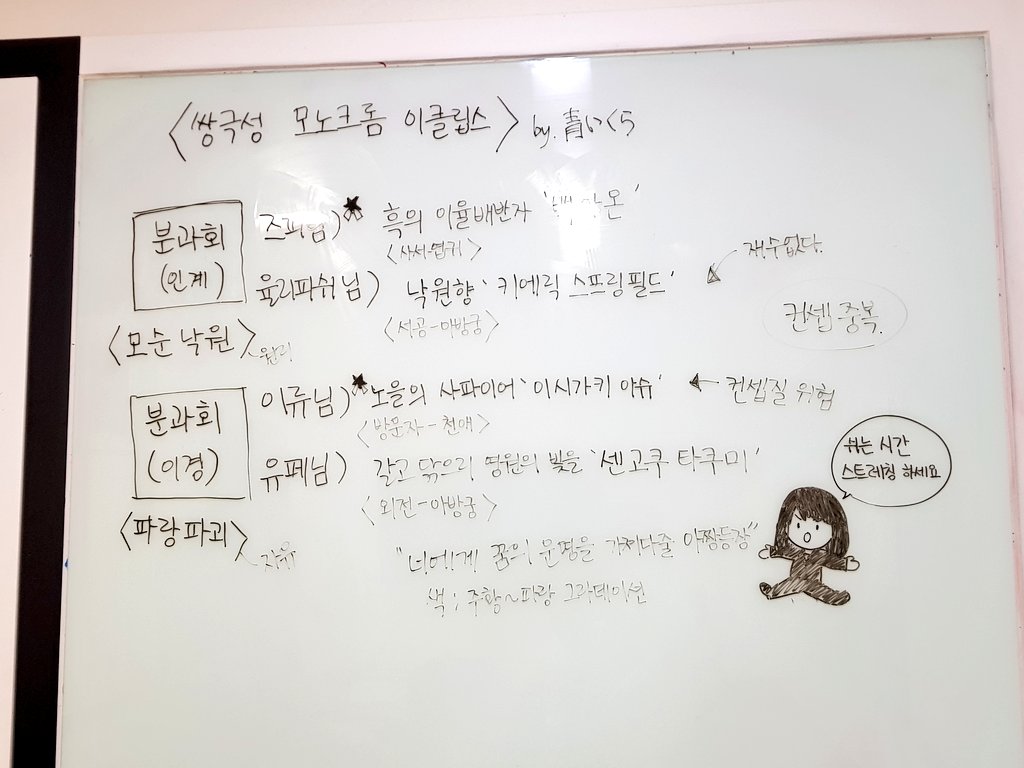 <쌍극성 모노크롬 이클립스> by. 青いくら
분과회
(인계)
<모순 낙원>
원리
즈피님) ★ 흑의 이율배반자
<사서-엽기>
율리파쉬님) 낙원향 '키에릭 스프링필드'
<서공-아방궁>
재수없다.
컨셉 중복.
분과회
(이경)
<파랑 파괴>
자유
이류님) ★ 노을의 사파이어 '이시가키 야슈'
<방문자-천애>
컨셉질 위험
유페님) 갈고 닦으리 영원의 빛을 '센고쿠 타쿠미'
<외전-아방궁>
"너에게 꿈의 문명을 가져다줄 아짱등장"
색 : 주황~파랑 그라데이션
쉬는 시간
스트레칭 하세요